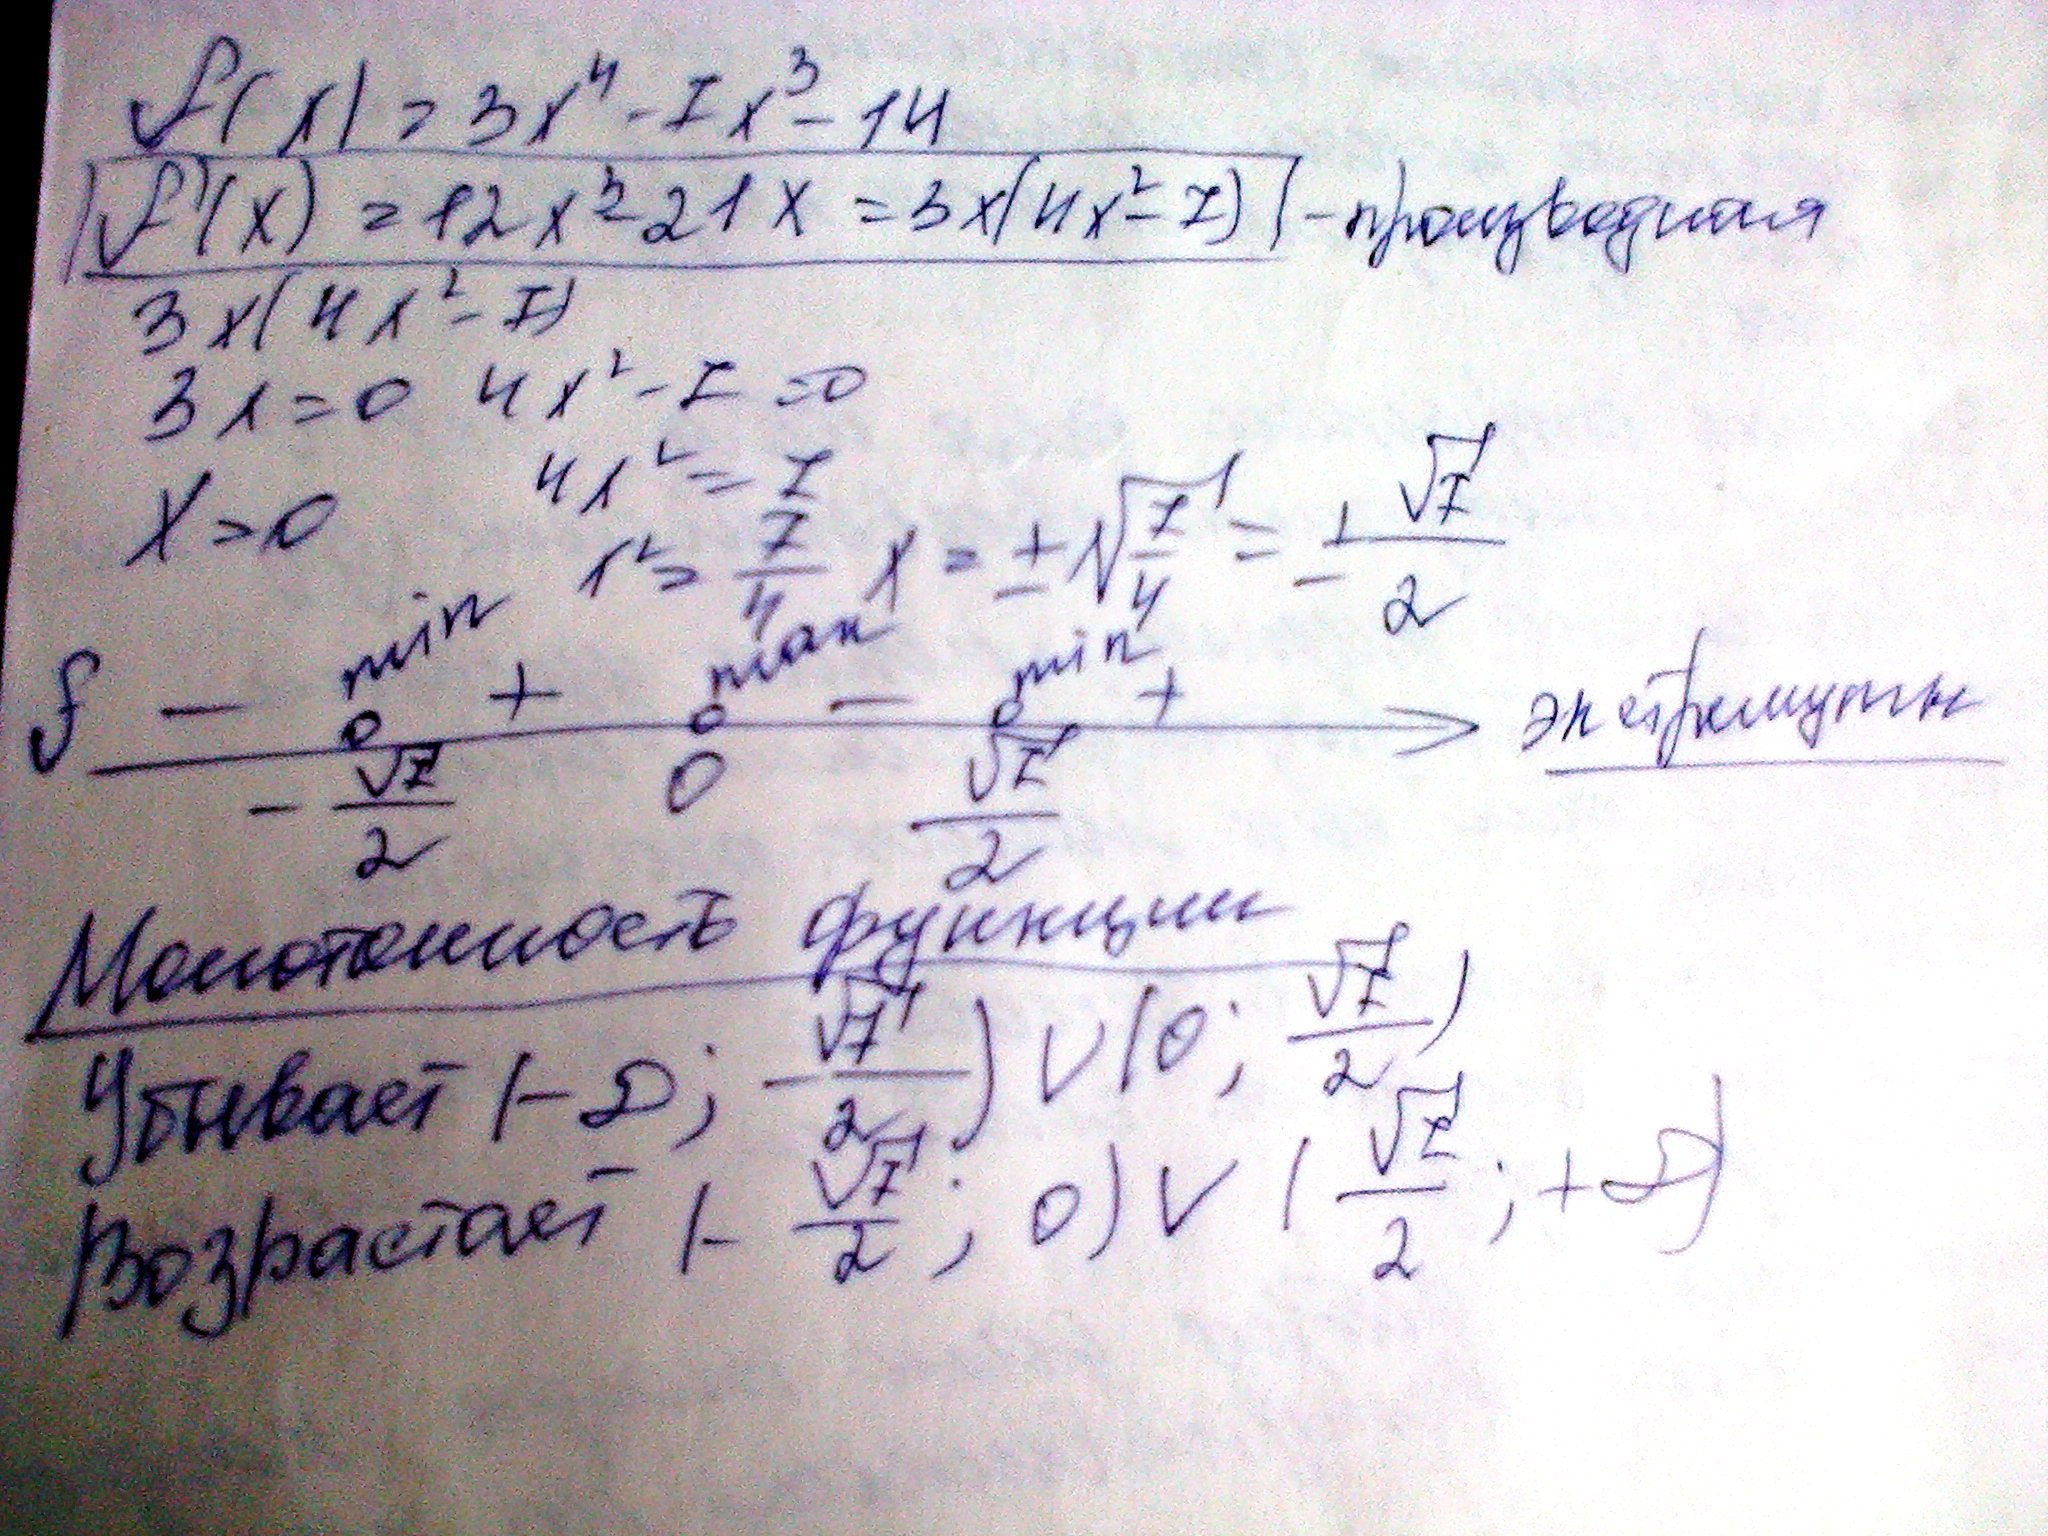 f(x) = 3x⁴ - 7x³ - 14
f'(x) = 12x³ - 21x = 3x(4x² - 7) - производная
3x(4x² - 7)
3x = 0 4x² - 7 = 0
x = 0 4x² = 7
x² = 7/4 x = ±√(7/4) = ±√7/2
min max min
f - + - + экстремумы
-√7/2 0 √7/2
Монотонность функции
Убывает (-∞; -√7/2) ∪ (0; √7/2)
Возрастает (-√7/2; 0) ∪ (√7/2; +∞)